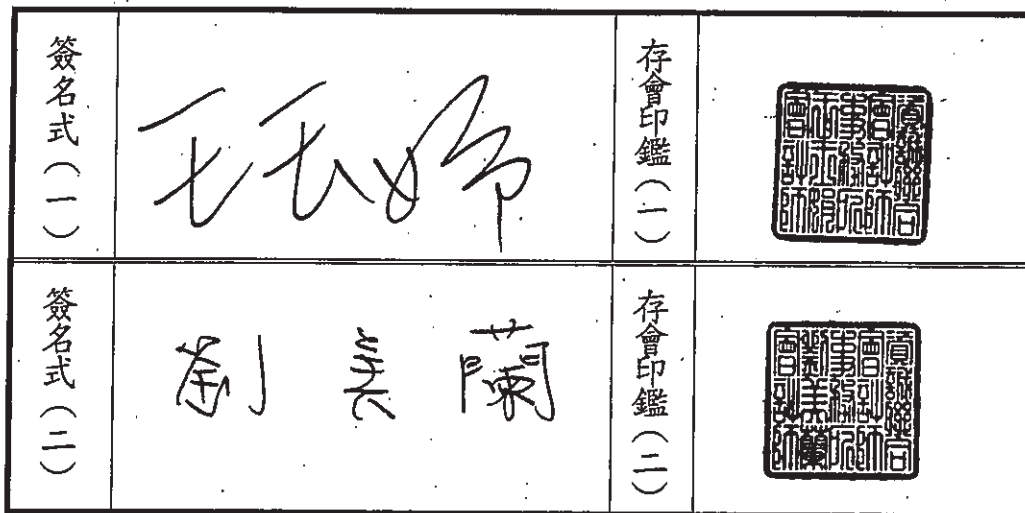 簽名式(一)
王玉娟
存會印鑑(一)
資誠聯合會計師事務所王玉娟會計師
簽名式(二)
劉美蘭
存會印鑑(二)
資誠聯合會計師事務所劉美蘭會計師